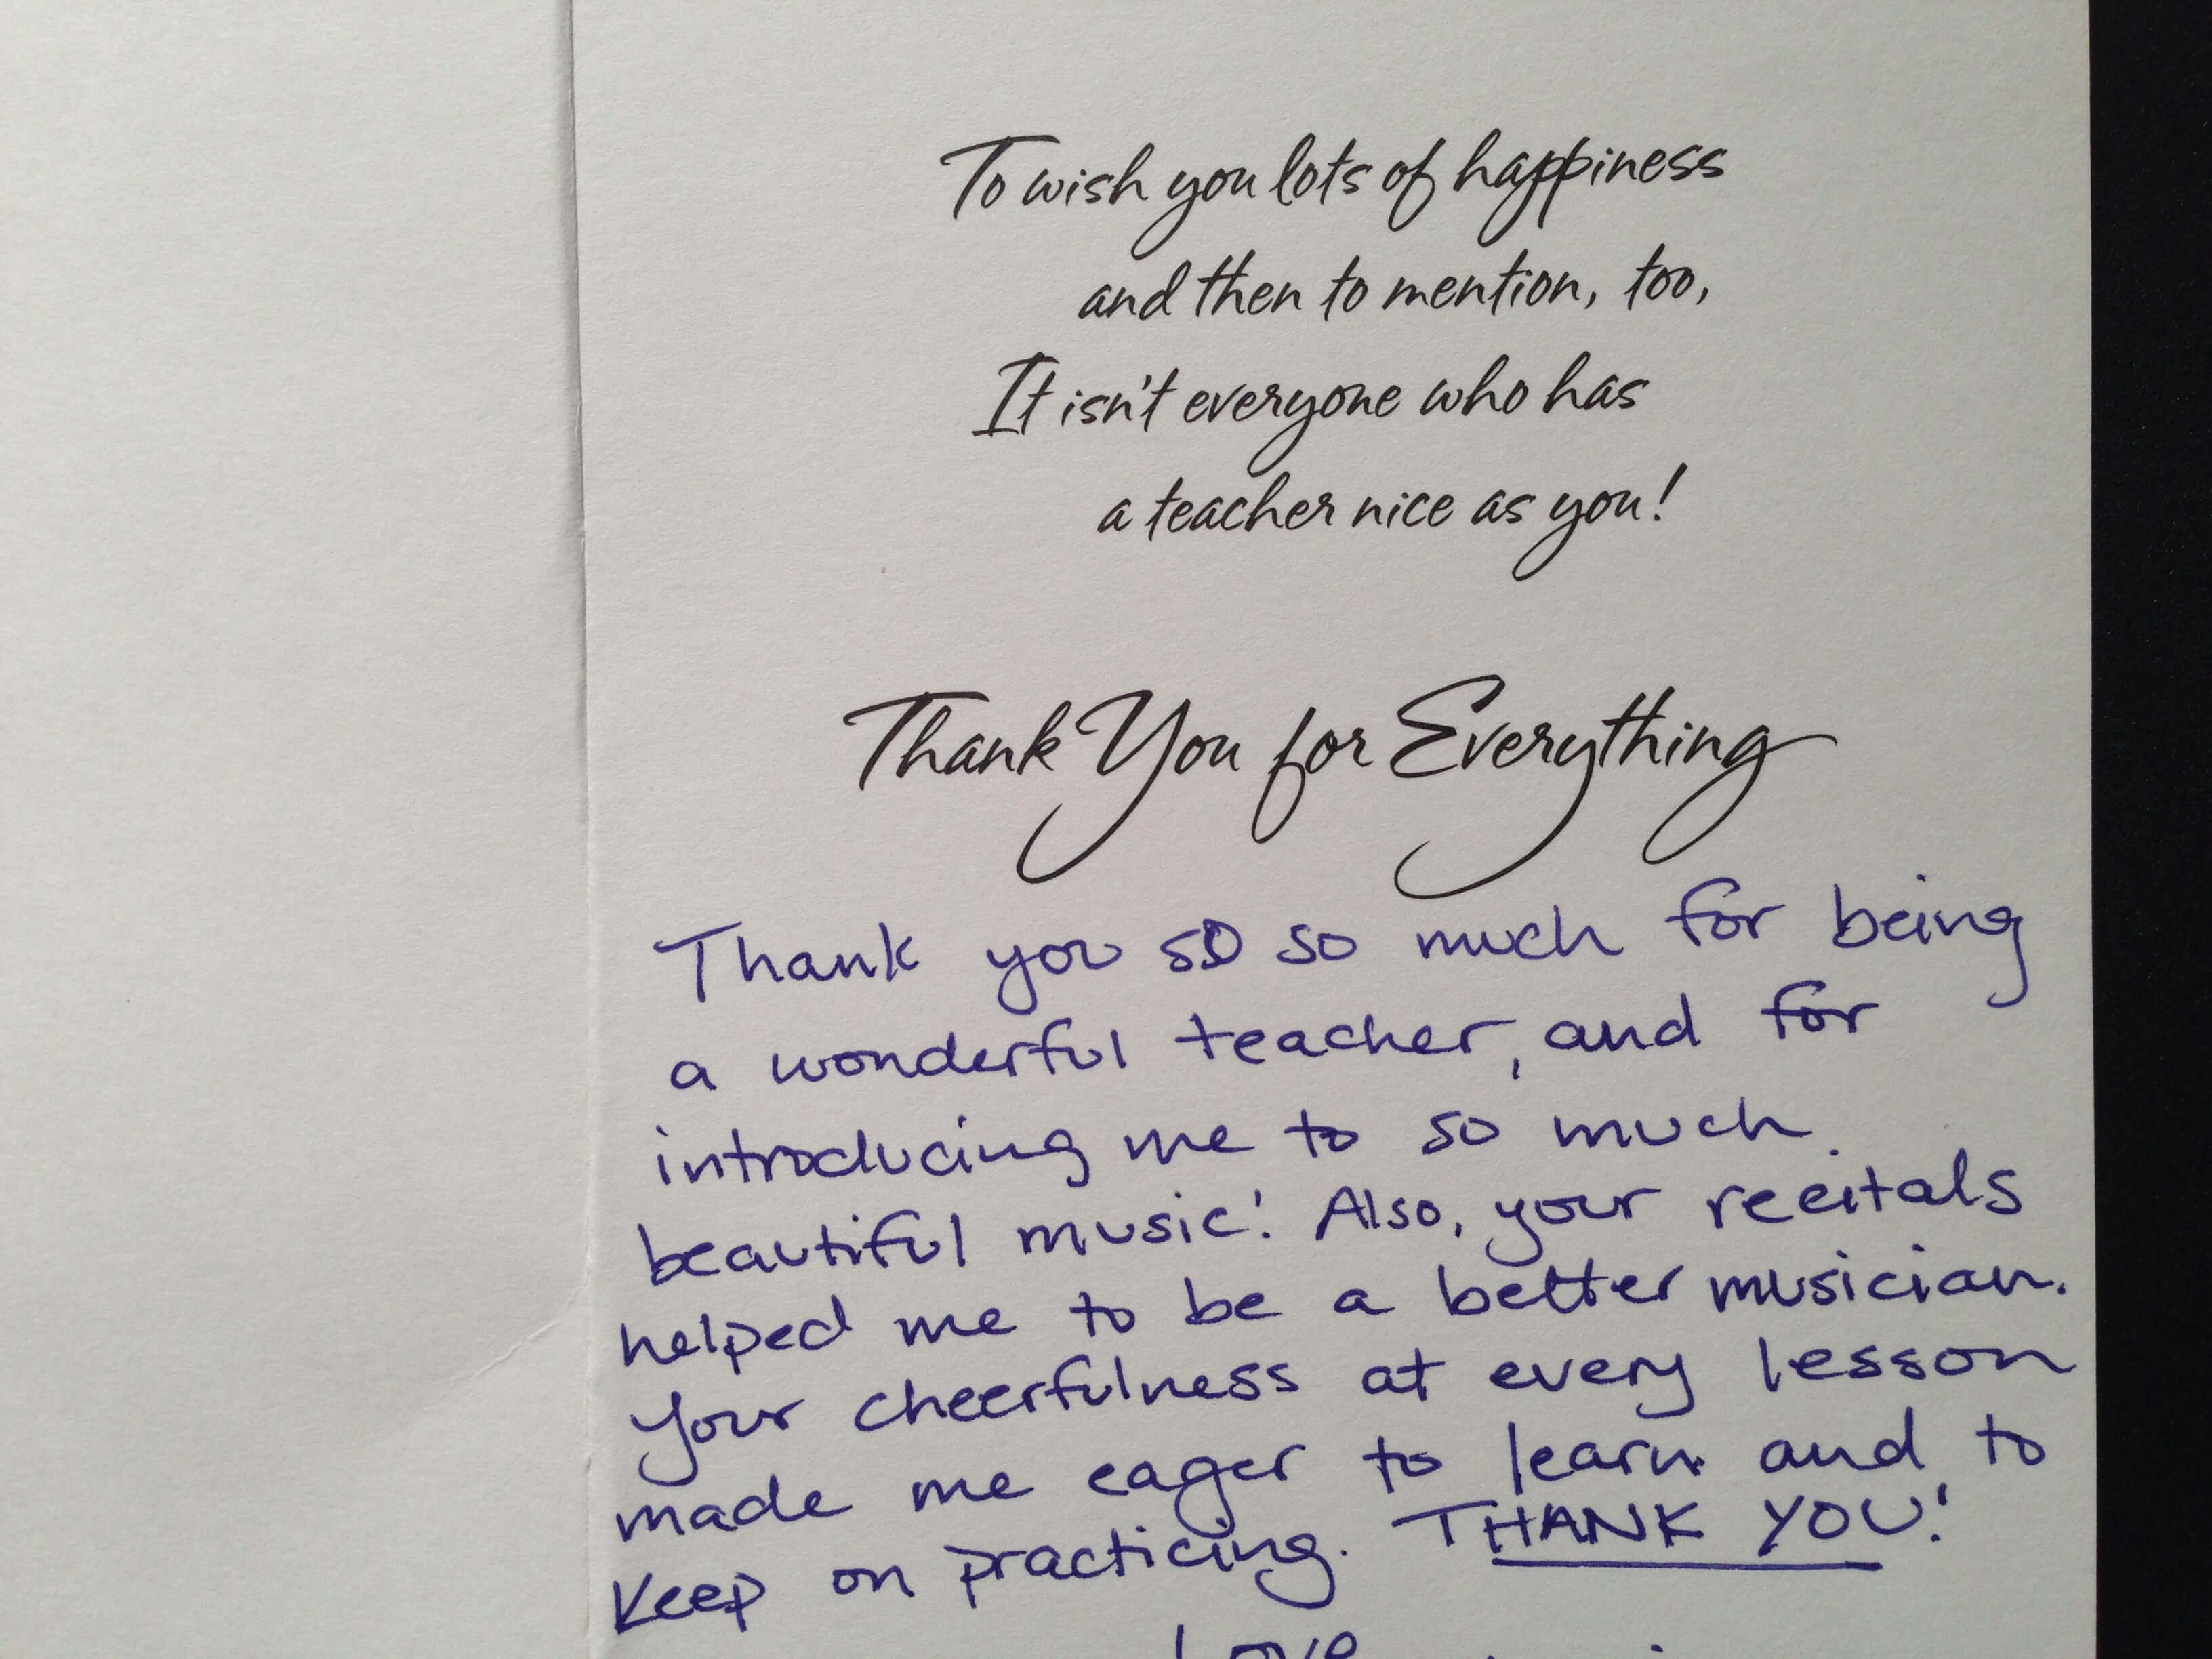 To wish you lots of happiness
and then to mention, too,
It isn't everyone who has
a teacher nice as you!
Thank You for Everything
Thank you so so much for being
a wonderful teacher, and for
introducing me to so much
beautiful music! Also, your recitals
helped me to be a better musician.
Your cheerfulness at every lesson
made me eager to learn and to
keep on practicing. THANK YOU!
Love